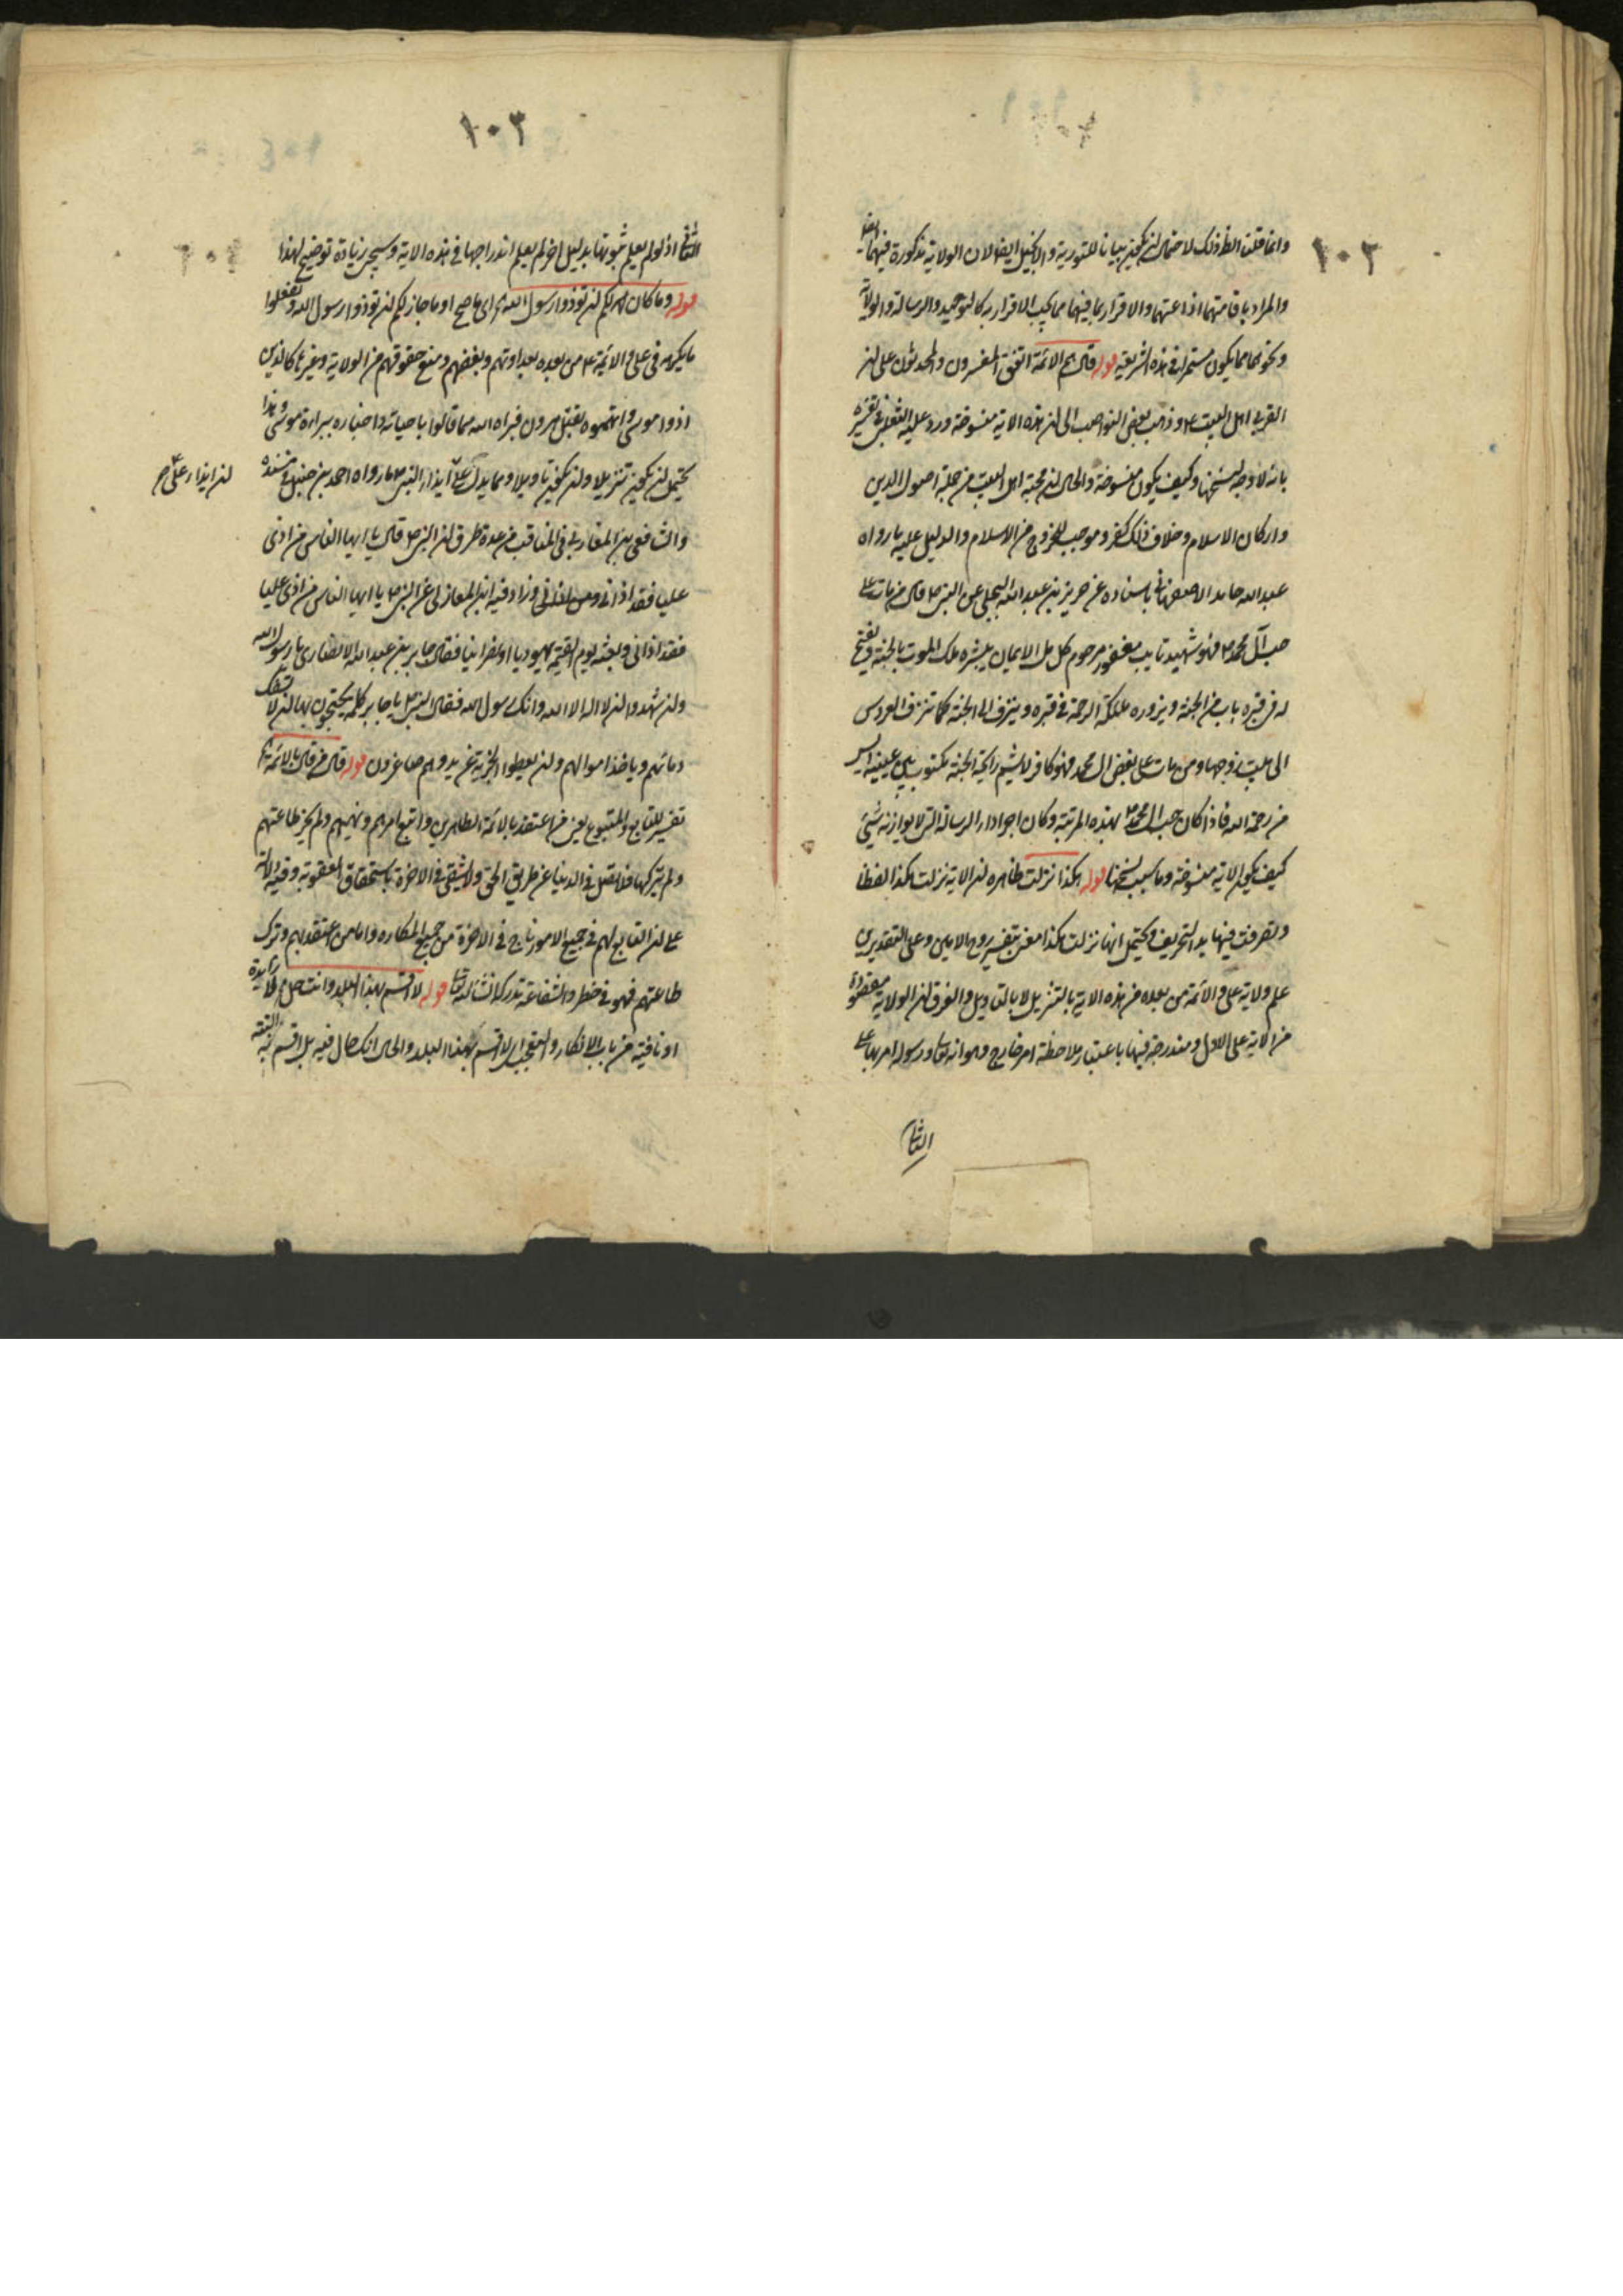 ١٠٢
وانما قلنا الظ ذلك لاحتمال ان يكون بيانا للتورية والانجيل ايضا لان الولاية مذكورة فيهما ايضا
والمراد باقامتهما اذاعتهما والاقرار بما فيهما مما يجب الاقرار به كالتوحيد والرسالة والولاية
ونحوهما مما يكون مستمرا في هذه الشريعة قوله قال هم الائمة اتفق المفسرون والمحدثون على ان
القربى اهل البيت ع وذهب بعض النواصب الى ان هذه الاية منسوخة ورد عليه الثعلبي في تفسيره
بانه لا وجه لنسخها وكيف يكون منسوخة والحال ان محبة اهل البيت من جملة اصول الدين
واركان الاسلام وخلاف ذلك كفر وموجب للخروج من الاسلام والدليل عليه ما رواه
عبد الله حامد الاصفهاني باسناده عن جرير بن عبد الله البجلي عن النبي ص قال من مات على
حب آل محمد ص فهو شهيد تايب مغفور مرحوم كامل الايمان يبشره ملك الموت بالجنة ويفتح
له في قبره باب من الجنة ويزوره ملئكة الرحمة في قبره ويزف الى الجنة كما تزف العروس
الى بيت زوجها ومن مات على بغض ال محمد فهو كافر لا يشم رايحة الجنة مكتوب بين عينيه ايس
من رحمة الله فاذا كان حب ال محمد ص بهذه المرتبة وكان اجرا داء الرسالة التي لا يوازنه شيئ
كيف يكون الاية منسوخة وما سبب نسخها قوله هكذا نزلت ظاهره ان الاية نزلت هكذا لفظا
وتصرفت فيها يد التحريف ويحتمل انها نزلت هكذا معنى بتفسير روح الامين وعلى التقديرين
علم ولاية علي والائمة من بعده من هذه الاية بالتنزيل لا بالتاويل والفرق ان الولاية مقصودة
من الاية على الاول ومندرجة فيها باعتبار ملاحظة امر خارج وهو انه تعالى ورسوله امر بها على
الثاني
١٠٣
الثاني اذ لو لم يعلم ثبوتها بدليل اخر لم يعلم اندراجها في هذه الاية وسيجئ زيادة توضيح لهذا
قوله وما كان لكم ان تؤذوا رسول الله اى ما صح او ما جاز لكم ان تؤذوا رسول الله وتفعلوا
ما يكره في علي والائمة ع من بعده بعداوتهم وبغضهم ومنع حقوقهم من الولاية وغيرها كالذين
اذوا موسى واتهموه بقتل هرون فبراه الله مما قالوا باحيائه واخباره ببراءة موسى وهذا
يحتمل ان يكون تنزيلا وان يكون تاويلا ومما يدل على ايذاء النبي ص ما رواه احمد بن حنبل في مسنده
ان ايذاء علي ع
والشافعي بن المغازلي في المناقب من عدة طرق ان النبي ص قال يا ايها الناس من اذى
عليا فقد اذاني وزاد فيه ابن المغازلي عن النبي ص يا ايها الناس من اذى عليا
فقد اذاني وبعث يوم القيمة يهوديا او نصرانيا فقال جابر بن عبد الله الانصاري يا رسول الله
وان شهدوا ان لا اله الا الله وانك رسول الله فقال النبي ص يا جابر كلمة يحتجون بها ان لا تسفك
دمائهم ويأخذ اموالهم وان يعطوا الجزية عن يد وهم صاغرون قوله قال من قال بالائمة
تفسير للتابع والمتبوع يعني من اعتقد بالائمة الطاهرين واتبع امرهم ونهيهم ولم يجز طاعتهم
ولم يتركها فلا يضل في الدنيا عن طريق الحق ولا يشقى في الاخرة باستحقاق العقوبة وفيه دلالة
على ان التابع لهم في جميع الامور ناج في الاخرة من جميع المكاره واما من اعتقد بهم وترك
طاعتهم فهو في خطر والشفاعة تدركه ان شاء الله تعالى قوله لا اقسم بهذا البلد وانت حل لا زايدة
او نافية من باب الانكار والتعجب اى لا اقسم بهذا البلد والحال انك حال فيه بل اقسم